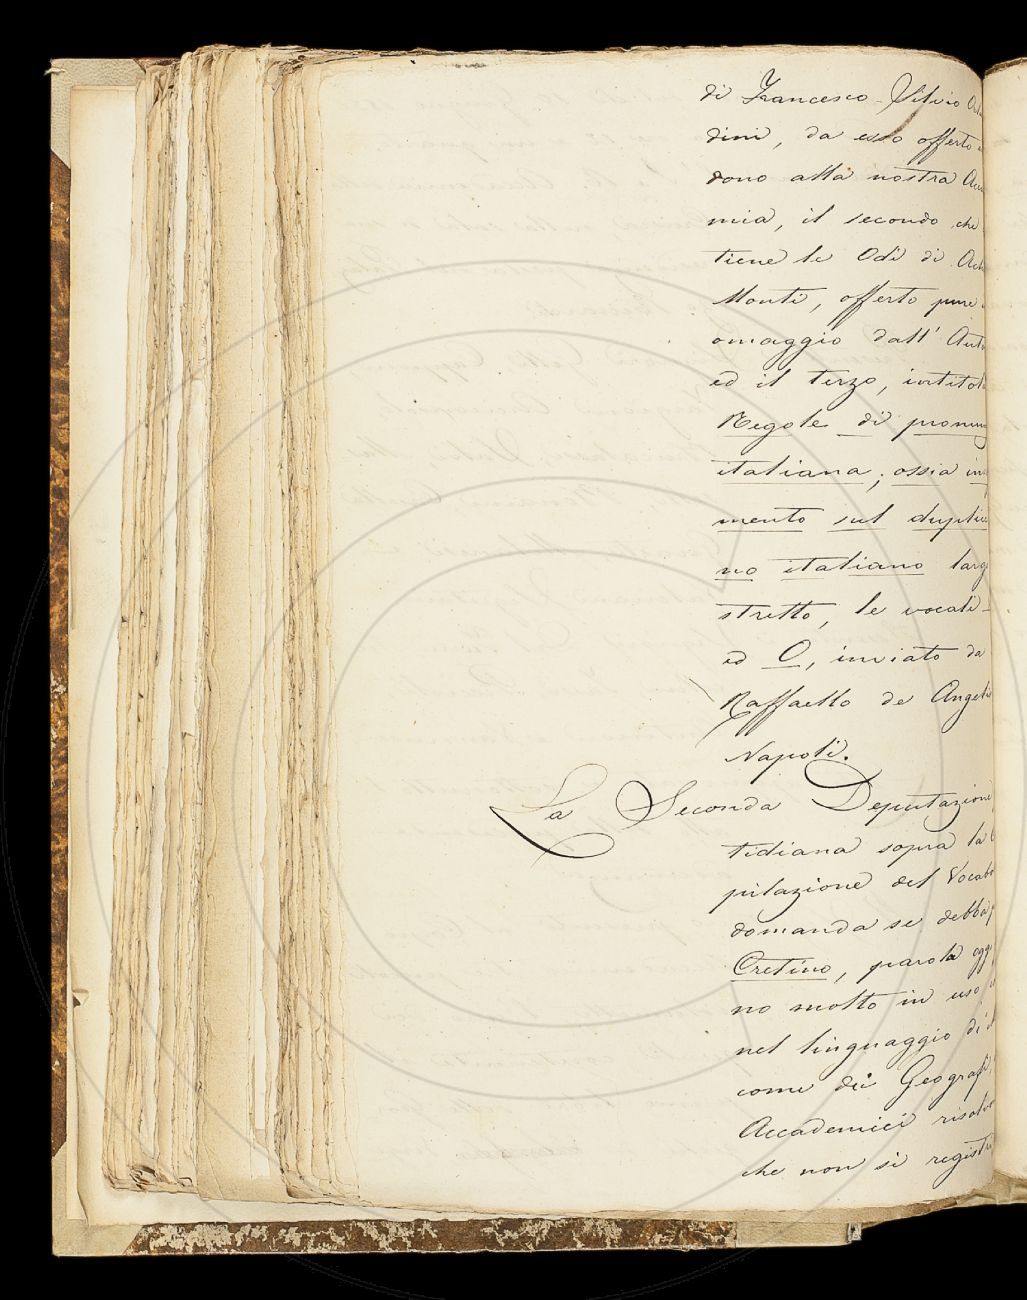 di Francesco Silvio Orla
dini, da esso offerto in
dono alla nostra Acca
mia, il secondo che
tiene le Odi di Ach
Monti, offerto pure
omaggio dall' Auto
ed il terzo, intitola
Regole di pronun
italiana, ossia in
mento sul duplice
no italiano larg
stretto, le vocali-
ed O, inviato da
Raffaello de Angelis
Napoli.
La Seconda Deputazione
tidiana sopra la
pilazione del Vocabo
domanda se debba
Cretino, parola oggi
no molto in uso
nel linguaggio di
come dei Geografi,
Accademici risolv
che non si registri